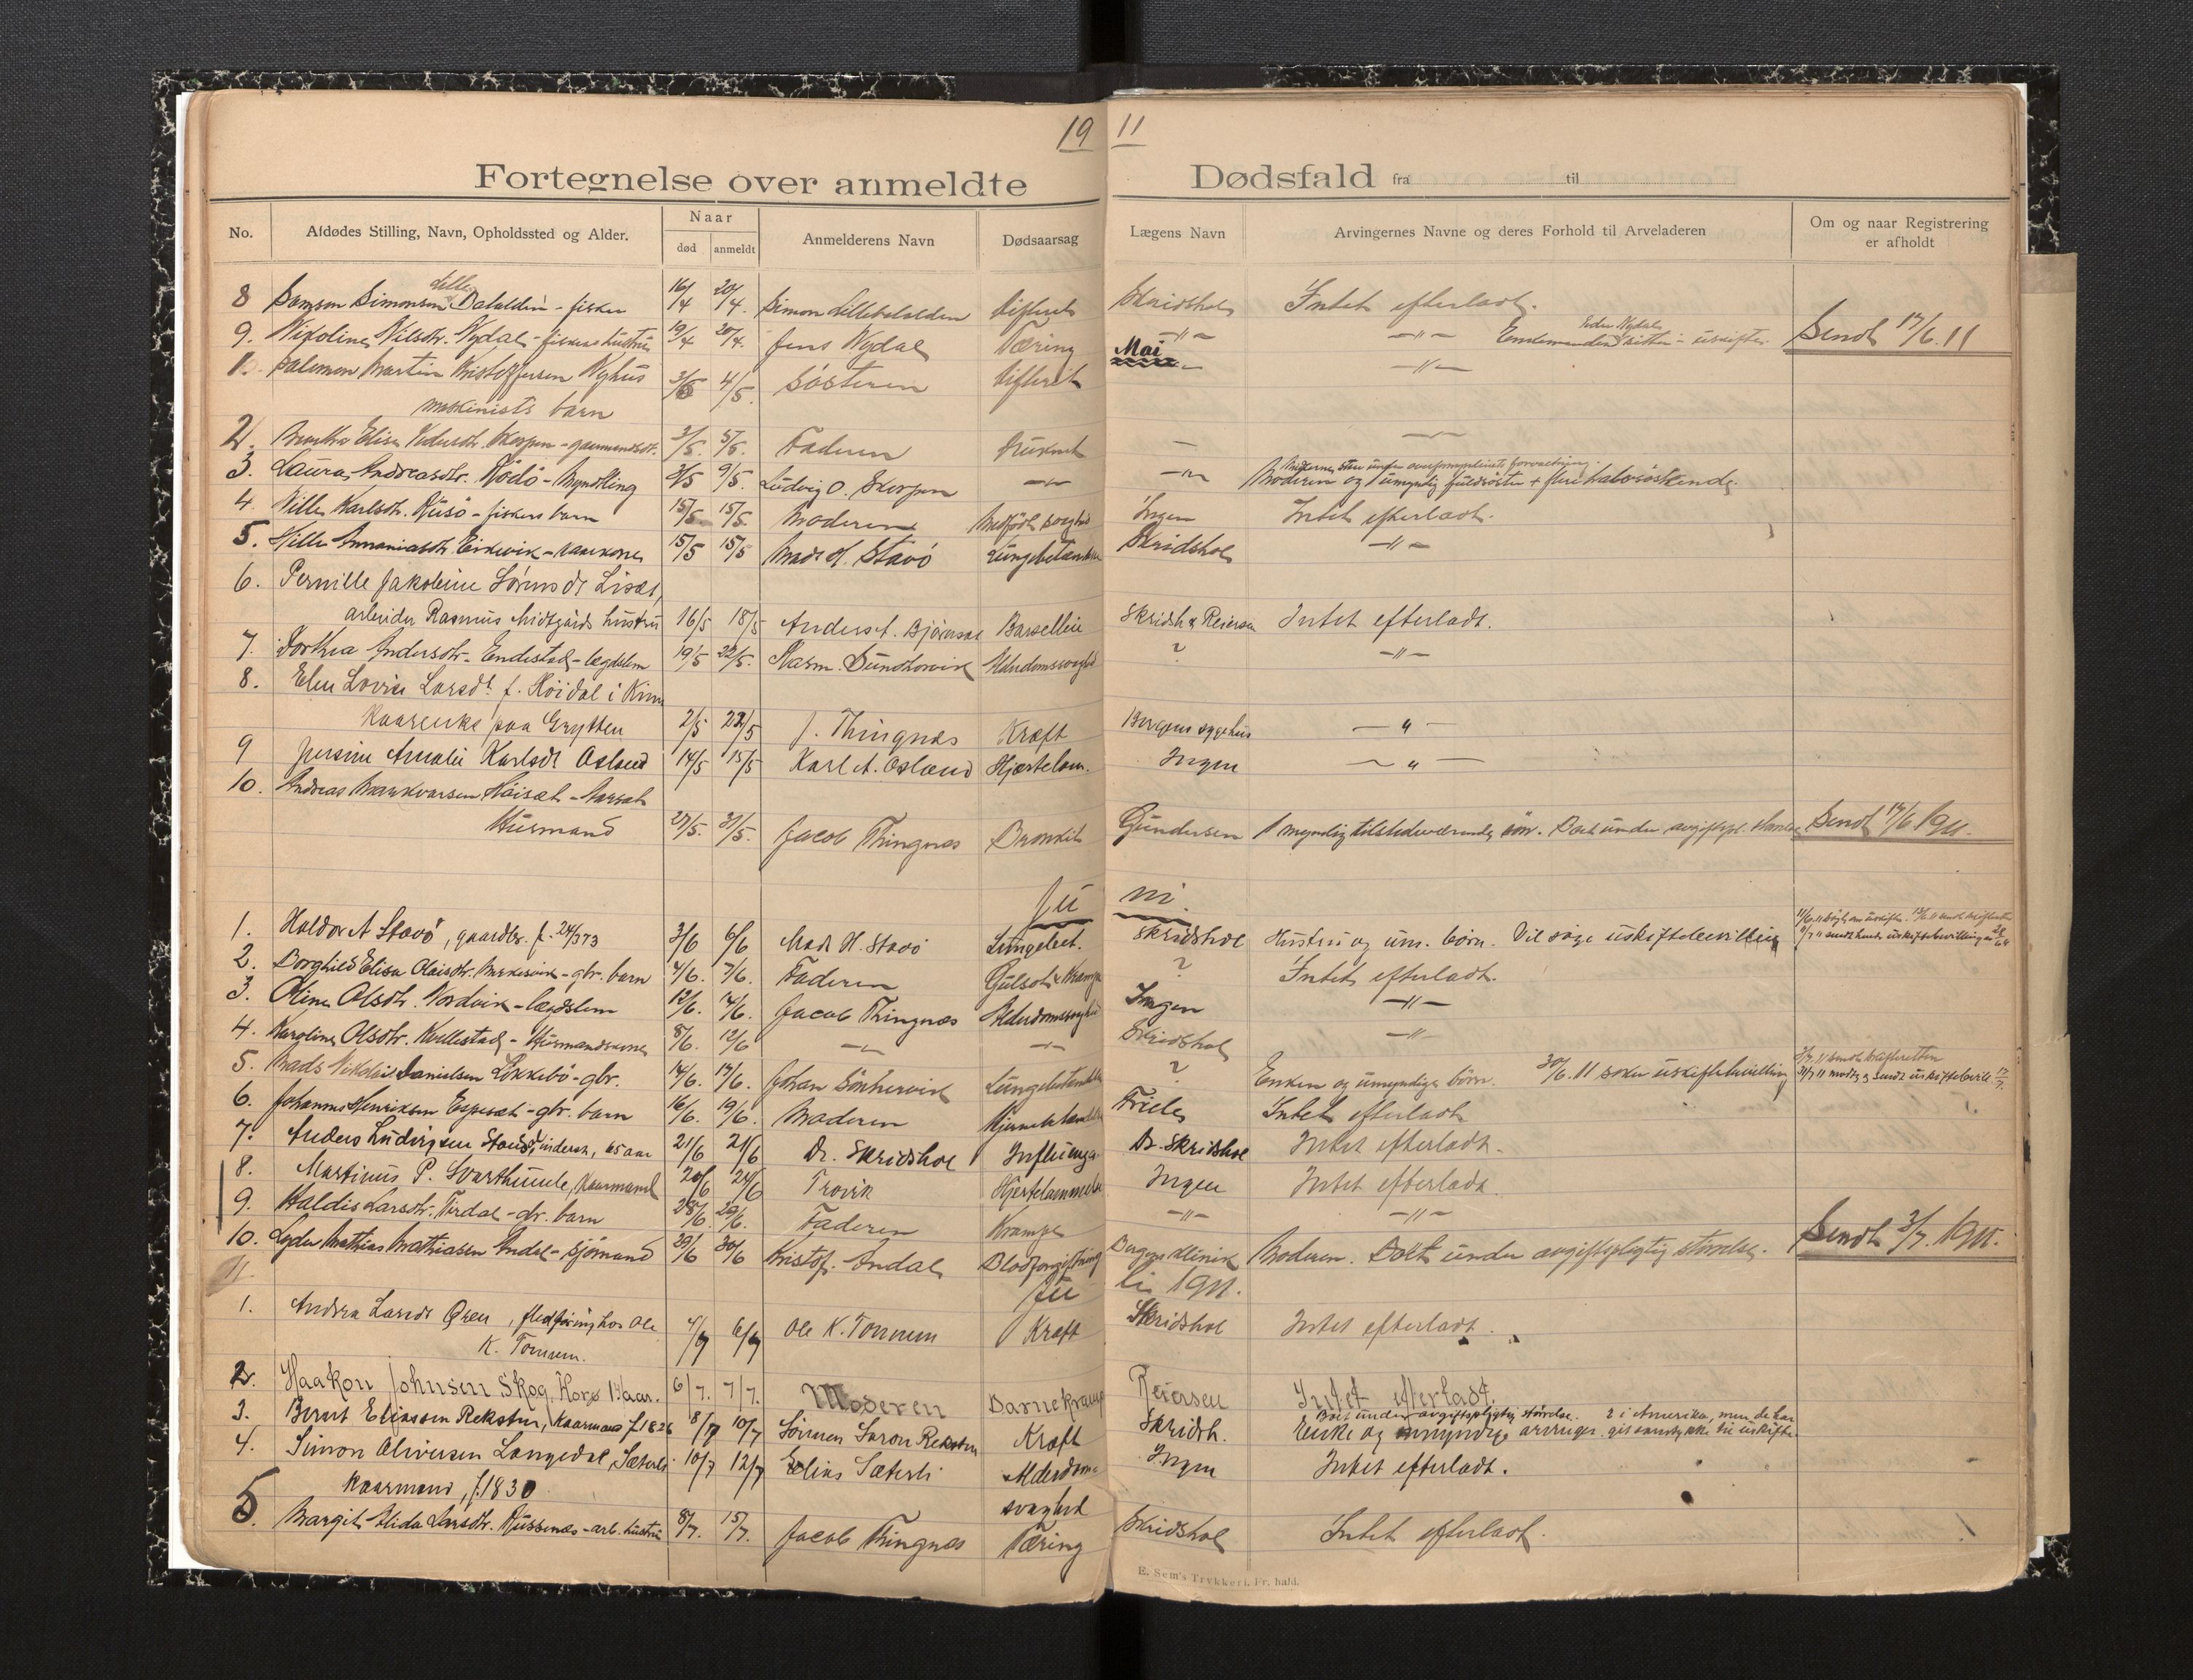 19 11
Fortegnelse over anmeldte Dødsfald fra til
No. Afdødes Stilling, Navn, Opholdssted og Alder. Naar død anmeldt Anmelderens Navn Dødsaarsag Lægens Navn Arvingernes Navne og deres Forhold til Arveladeren Om og naar Registrering er afholdt
Lille
8 Samson Simonsen Bataldén - fisker 16/4 20/4. Simon Lillebatalden Difterit Skridshol Intet efterladt.
9. Nikoline Nilsdtr. Nydal - fiskers hustru 19/4 20/4. Jens Nydal Tæring -"- -"- Enkemanden sitter i uskifte. Sendt 17/6.11
Mai
1. Salomon Martin Kristoffersen Nyhus 3/5 4/5. Søsteren Difterit -"-
maskinists barn
2. Martha Elise Pedersdtr. Skorpen - gaarmandsdtr. 3/5. 5/5. Faderen
3. Laura Andreasdtr. Rødø - Myndling 3/5 9/5. Ludvig O. Skorpen -"- -"- Moderen og 1 umyndig fuldsøster + flere halvsøskende.
4. Nille Karlsdtr. Husø - fiskers barn 15/5 15/5. Moderen Medfødt svaghed Ingen Intet efterladt.
5. Nille Ananiasdtr. Eikevik - kaarkone 15/5 15/5 Mads H. Stavø Lungebetændelse Skridshol -"-
6. Pernille Jakobine Sørensdr Lisæt,
arbeider Rasmus Midtgårds hustru 16/5 18/5 Anders A. Bjørnsæt Barselfeber Skridsh. & Reiersen Intet efterladt.
7. Dorthea Andersdtr. Endestad - lægdslem 19/5 22/5. Rasm. Sundhovik Alderdomssvaghed ? -"-
8. Elen Lovise Larsdt. f. Høidal i Kinn
kaarenke paa Grytten 2/5 22/5 J. Thingnæs Kræft Bergens sygehus - " -
9 Jensine Amalie Karlsdt Osland 14/5 15/5 Karl A. Osland Hjertelam. Ingen - " -
10. Andreas Markvarsen Høisæt - Aarsæt
Husmand 27/5. 31/5. Jacob Thingnæs Bronkit Gundersen 1 myndig tilstedeværende søn. Boet under avgiftspl. størrelse Sendt 17/6 1911.
Ju ni.
1. Haldor A Stavø, gaardbr. f. 24/3 73 3/6 6/6 Mads H. Stavø Lungebet. Skridshol Hustru og um. børn. Vil søge uskiftebevilling
2. Borghild Elise Olaisdtr. - gbr. barn 4/6. 7/6. Faderen Gulsot & Krampe ? Intet efterladt.
3. Oline Olsdtr. Nordvik - lægdslem 12/6. 14/6. Jacob Thingnæs Alderdomssvaghed Ingen -"-
4. Karoline Olsdtr. Kvellestad - Husmandskone 8/6. 12/6 -"- -"- Skridshol -"-
5. Mads Nikolai Danielsen Løkkebø - gbr. 14/6. 17/6. Johan Sønhervik Lungebetændelse ? Enken og umyndige børn. 30/6.11 søker uskiftebevilling
6. Johannes Henriksen Espesæt - gbr. barn 16/6. 19/6. Moderen Hjernebetændelse Friele Intet efterladt
7. Anders Ludvigsen Stavø, inderst, 65 aar 21/6 21/6 Dr. Skridshol Influenza Dr. Skridshol Intet efterladt.
8. Martinus P. Svarthumle, kaarmand 20/6 24/6 Trovik Hjertelammelse Ingen Intet efterladt.
9. Haldis Larsdtr. Firdal - gbr. barn 28/6. 29/6. Faderen Krampe -"- -"-
10. Lyder Mathias Mathiasen Indal - sjømand 29/6 30/6 Kristof. Indal Blodforgiftning Bergens klinik Moderen. Boet under avgiftspligtig størrelse. Sendt 3/7. 1911.
11.
Ju li 1911.
1. Andrea Larsdr Øren, flødføring hos Ole 4/7 6/7 Ole K. Tonnem Kræft Skridshol Intet efterladt.
K. Tonnem.
2. Haakon Johnsen Skog, Hore 1 Aar. 6/7. 7/7. Moderen Barnekrampe Reiersen Intet efterladt.
Boet under avgiftspligtig størrelse. 2 i Amerika, men de har
3. Bernt Eliassen Reksten, kaarmand f. 1826 8/7 10/7 Sørinen Saron Reksten Kræft Skridsh. Enke og myndige arvinger. git samtykke til uskifte.
4. Simon Oliversen Langedal, Sæterli 10/7 12/7 Elias Sæterli Alderdoms- Ingen Intet efterladt.
kaarmand, f. 1830 svaghed
5. Margit Alida Larsdtr. Russenes - arb. hustru 8/7. 15/7. Jacob Thingnæs Tæring Skridshol Intet efterladt.
E. Sem's Trykkeri, Fr. hald.